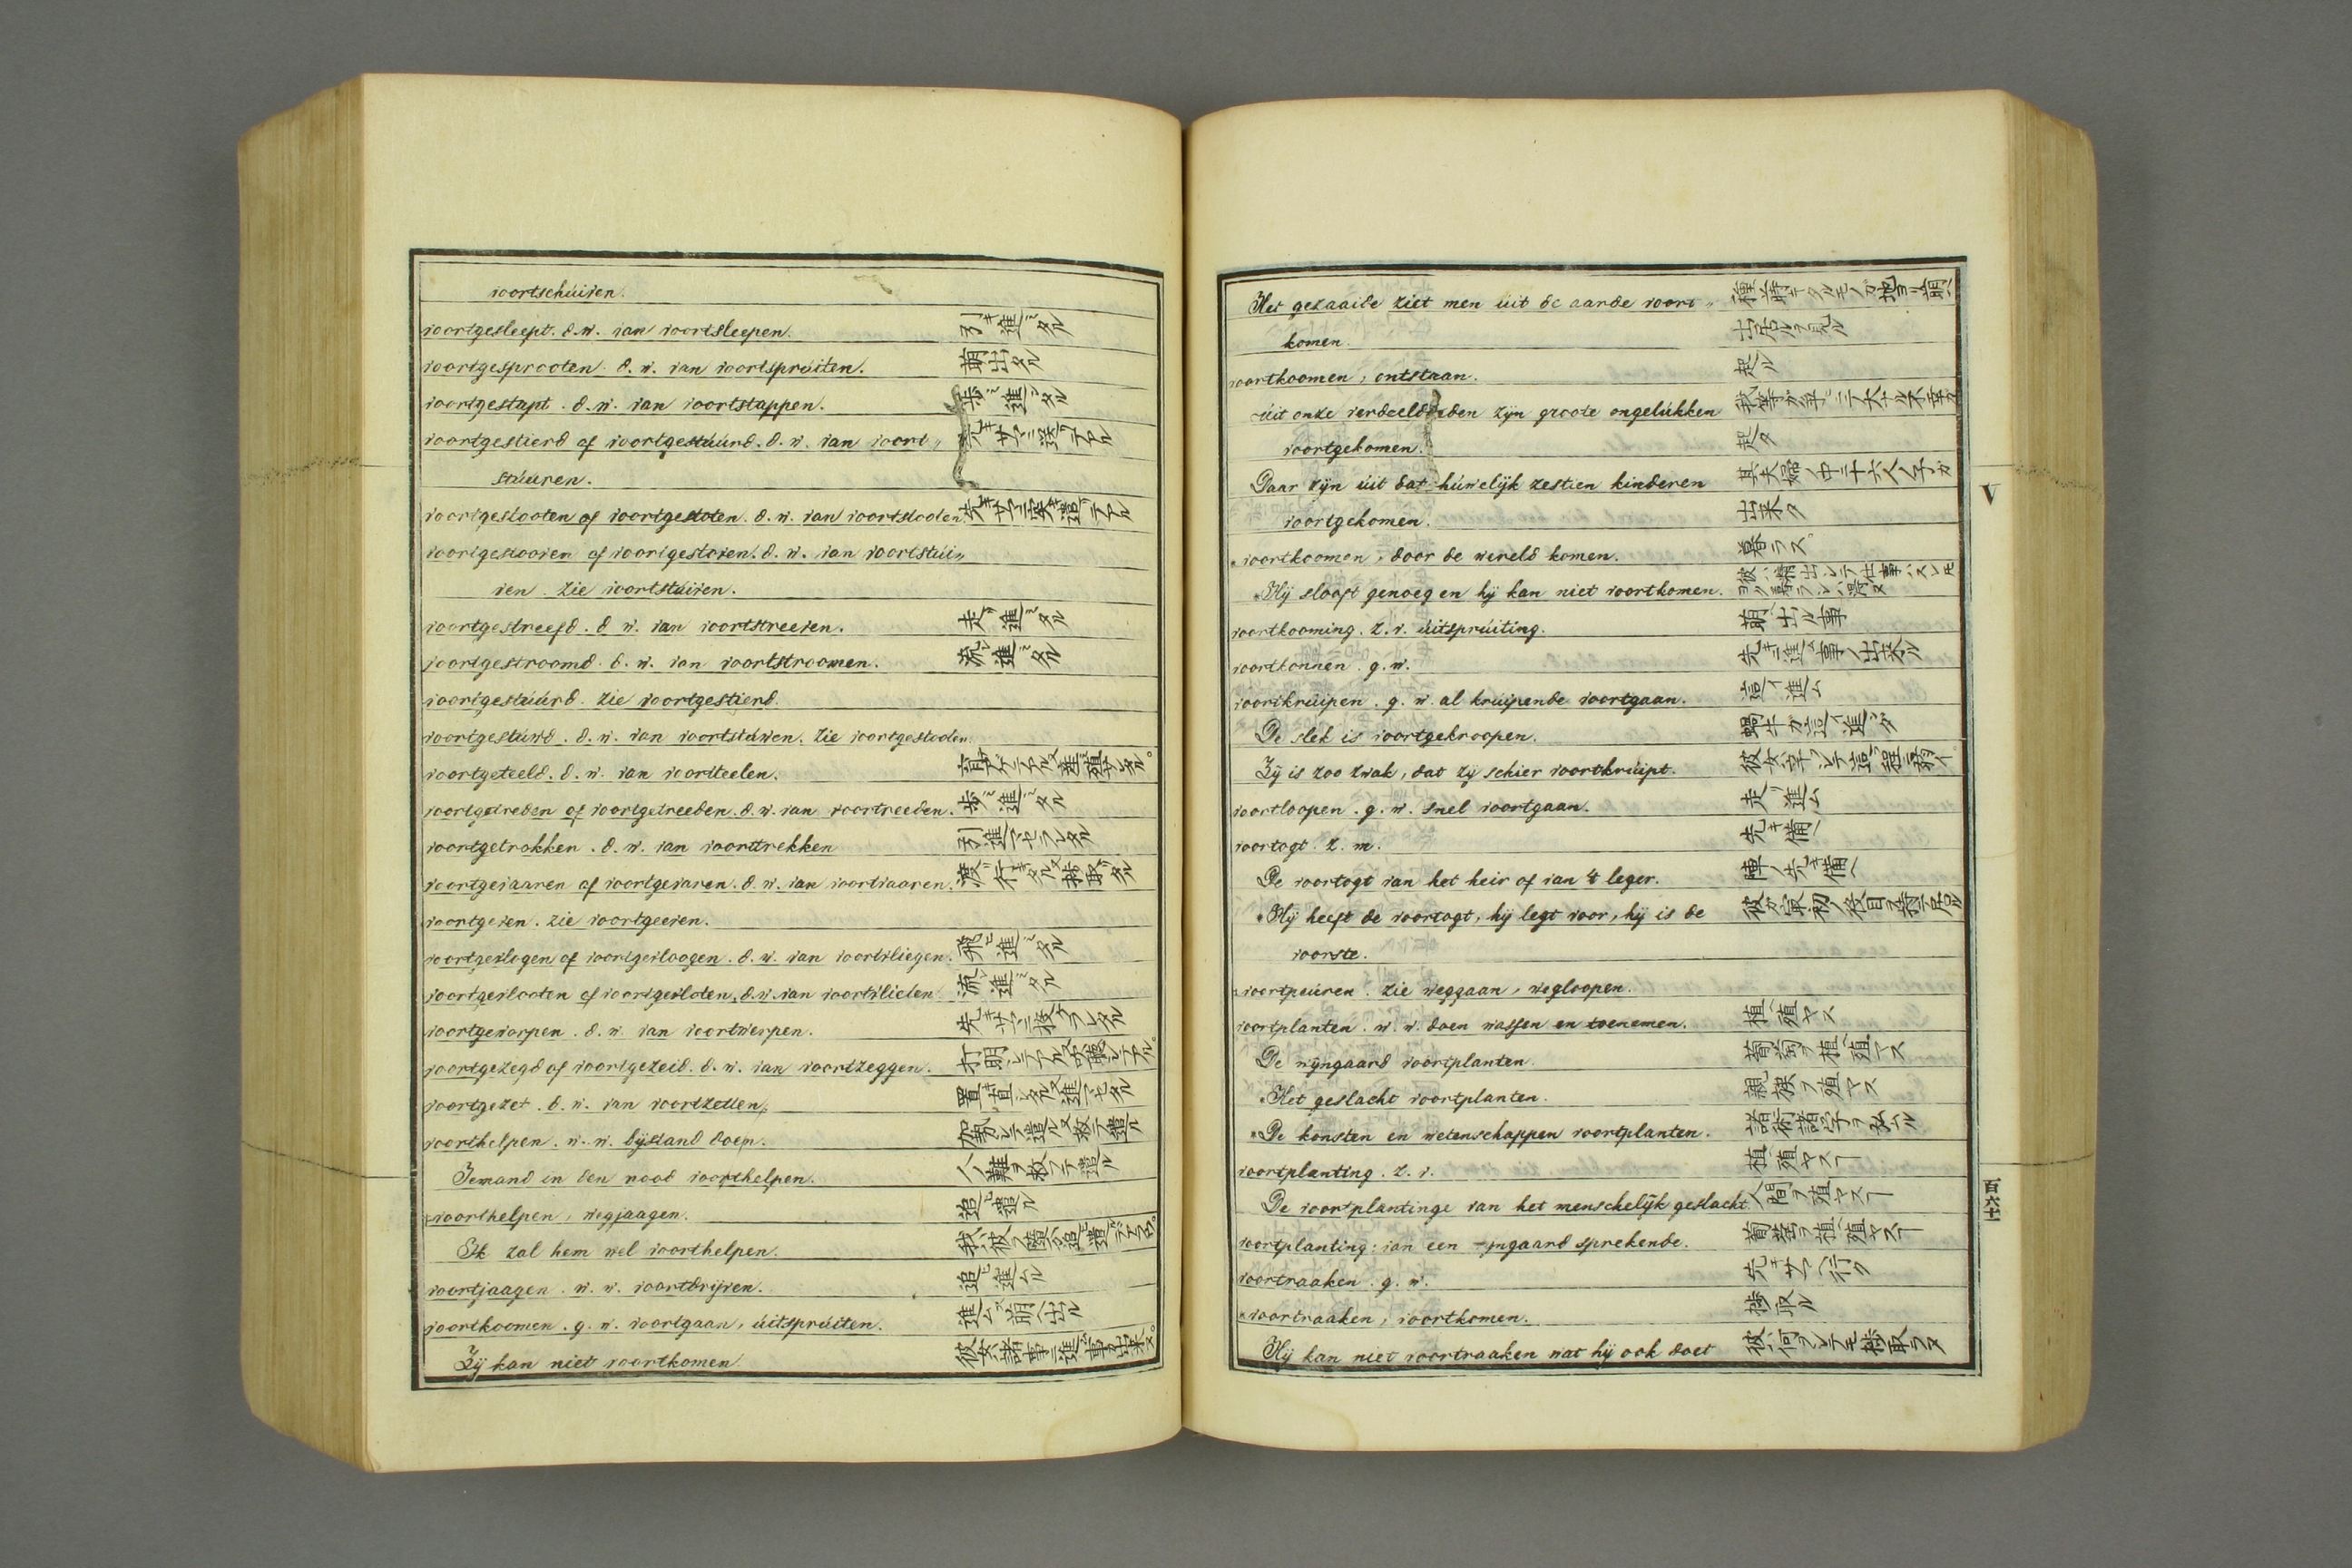 voortschúiven.
voortgesleept. d.w. van voortsleepen. 引キ進ミタル
voortgesprooten. d.w. van voortsprúiten. 萌出タル
voortgestapt. d.w. van voortstappen. 歩ミ進ミタル
voortgestierd of voortgestúúrd. d.w. van voort„
stúuren.
voortgestooten of voortgestoten. d.w. van voortstooten.
voortgestooven of voortgestoven. d.w. van voortstúi„
ven. zie voortstúiven.
voortgestreefd. d.w. van voortstreeven. 走リ進ミタル
voortgestroomd. d.w. van voortstroomen. 流レ進ミタル
voortgestúúrd. zie voortgestierd.
voortgestúwd. d.w. van voortstúwen. zie voortgestooten.
voortgeteeld. d.w. van voortteelen.
voortgetreden of voortgetreeden. d.w. van voortreeden. 歩ミ進ミタル
voortgetrokken. d.w. van voorttrekken
voortgevaaren of voortgevaren. d.w. van voortvaaren.
voortgeven. zie voortgeeven.
voortgevlogen of voortgevloogen. d.w. van voortvliegen. 飛ヒ進ミタル
voortgevlooten of voortgevloten. d.w. van voortvlieten. 流レ進ミタル
voortgeworpen. d.w. van voortwerpen.
voortgezegd of voortgezeid. d.w. van voortzeggen.
voortgezet. d.w. van voortzetten.
voorthelpen. w.w. bijstand doen.
Iemand in den nood voorthelpen. 人ノ難ヲ救フテ遣ル
voorthelpen, wegjaagen. 追ヒ遣ル
Ik zal hem wel voorthelpen.
voortjaagen. w.w. voortdrijven. 追ヒ進ムル
voortkoomen. g.w. voortgaan, úitsprúiten.
Zij kan niet voortkomen.
Het gezaaide ziet men úit de aarde voort„
komen. 出居ルヲ見ル
voortkoomen, ontstaan. 起ル
úit onze verdeeldheden zijn groote ongelúkken
voortgekomen. 起タ
Daar zijn úit dat húwelijk zestien kinderen 其夫婦ノ中ニ十六人ノ子ガ
voortgekomen. 出来タ
voortkoomen, door de wereld komen. 暮ラス
Hij slooft genoeg en hij kan niet voortkomen.
voortkooming. z.v. úitsprúiting. 萌ヘ出ル事
voortkonnen. g.w. 先キニ進ム事ノ出来ル
voortkrúipen. g.w. al krúipende voortgaan. 這イ進ム
De slek is voortgekroopen. 蝸牛ガ這イ進ンダ
Zij is zoo zwak, dat zij schier voortkrúipt.
voortloopen. g.w. snel voortgaan. 走リ進ム
voortogt. z.m. 先キ備ヘ
De voortogt van het heir of van 't leger. 陣ノ先キ備ヘ
Hij heeft de voortogt, hij legt voor, hij is de
voorste.
voortpeúren. zie weggaan, wegloopen.
voortplanten. w.w. doen wassen en toenemen. 植ヘ殖ヤス
De wijngaard voortplanten. 葡萄ヲ植ヘ殖ヤス
Het geslacht voortplanten. 親族ヲ殖ヤス
De konsten en wetenschappen voortplanten. 諸術諸学ヲ弘ムル
voortplanting. z.v. 植ヘ殖ヤスヿ
De voortplantinge van het menschelijk geslacht. 人間ヲ殖ヤスヿ
voortplanting: van een -jngaard sprekende. 葡萄ヲ植ヘ殖ヤスヿ
voortraaken. g.w. 先キサマヘ行ク
voortraaken, voortkomen. 捗取ル
Hij kan niet voortraaken wat hij ook doet 彼ハ何ヲシテモ捗取ラヌ
V
百六十